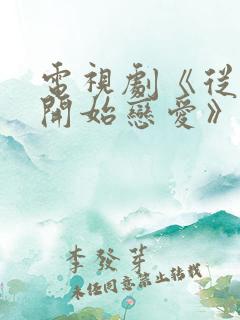 電視劇《從
開始戀愛》
李發芽
未經同意禁止轉載